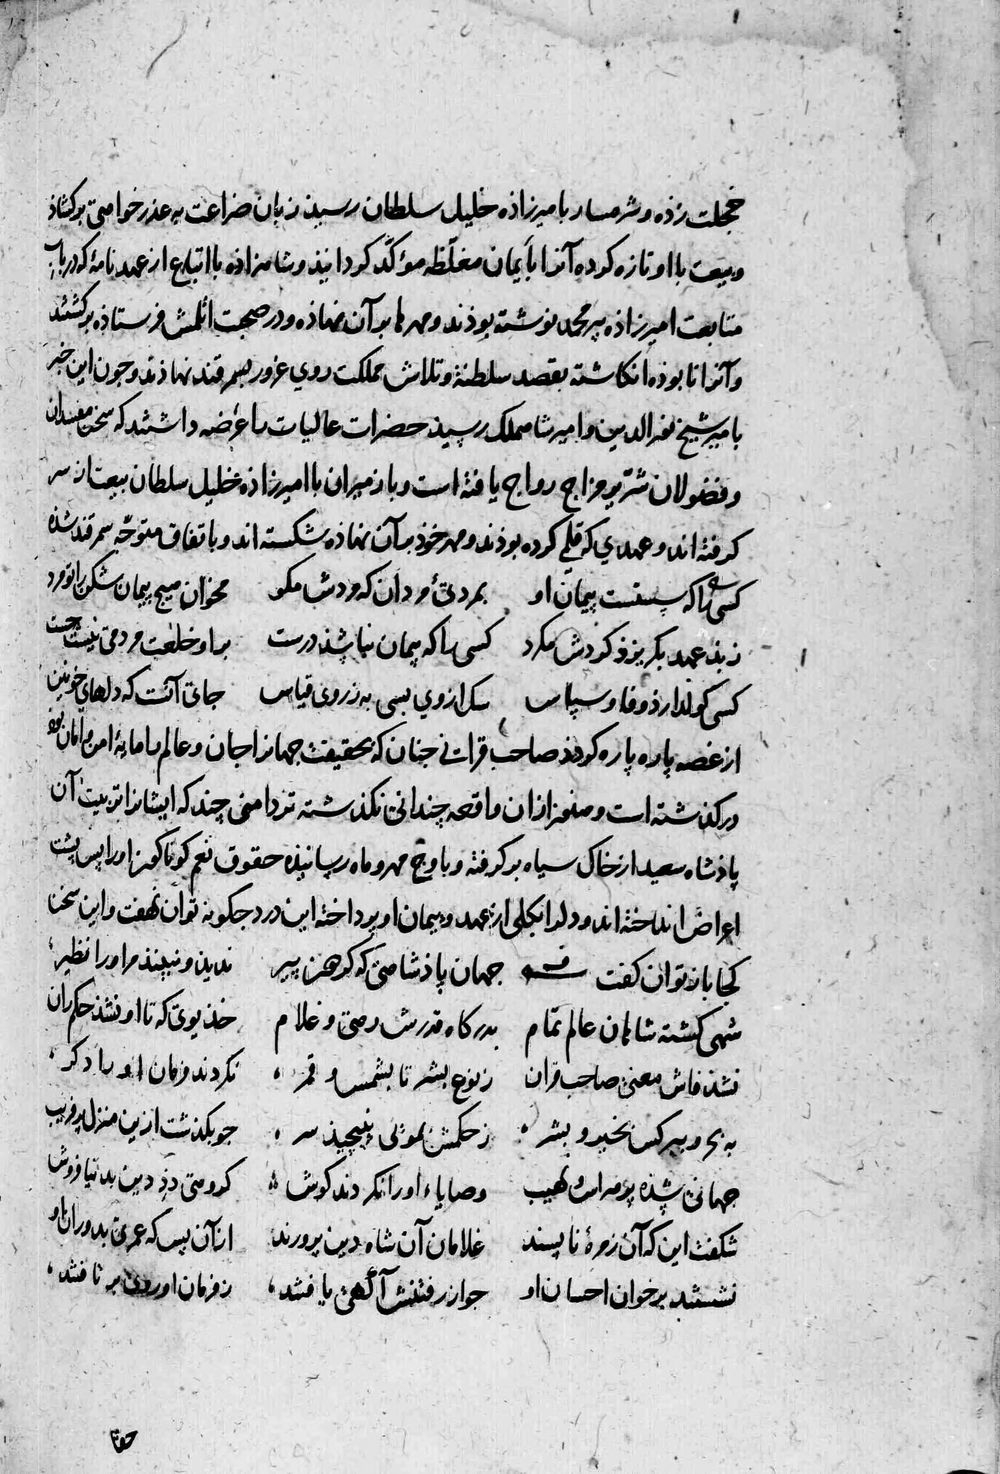 خجلت زذه و شرمسار با میرزاذه خلیل سلطان رسیذ زبان ضراعت به عذر خواهی برکشاذ
و بیعت با او تازه کرده آنرا بأیمان مغلّظه مؤکّد کردانیذ و شاهزاذه با اتباع از عهد نامهٔ که در باب
متابعت امیرزاذه پیر محمد نوشته بوذند و مهرها بر آن نهاذه و در صحبت اتلمش فرستاذه برکشتند
و آنرا نابوذه انکاشته بقصد سلطنة و تلاش مملکت روی غرور بسمرقند نهاذند و چون این خبر
بامیر شیخ نور الدین و امیر شاهملک رسیذ حضرات عالیات را عرضه داشتند که سخن مفسدان
و فضولان شریر مزاج رواج یافته است و باز میران با امیرزاذه خلیل سلطان بیعت از سر
کرفته اند و عهدی که قلمی کرده بوذند و مهر خوذ بر آن نهاذه شکسته اند و باتفاق متوجّه سمرقند شذه
کسی را که سستست پیمان او بمردئ مردان که مردش مکو مخوان هیچ پیمان شکن را تو مرد
ز بذ عهد بکریز و ذکردش مکرد کسی را که پیمان نباشذ درست بر او خلعت مردمی نیست چست
کسی کو ندارذ وفا و سپاس سک از وی بسی به ز روی قیاس جای آنست که دلهای خونین
از غصه پاره پاره کردذ صاحب قرانی چنان که بحقیقت جهانرا جان و عالم را مایهٔ امن و امان بوذ
در کذشته است و هنوز از ان واقعه چندانی نکذشته تردامنی چند که ایشانرا تربیت آن
پاذشاه سعید از خاک سیاه بر کرفته و باوج مهر و ماه رسانیذه حقوق نعم کوناکون او را پس پشت
اعراض انداخته اند و دل بکلی از عهد و پیمان او پرداخته این درد چکونه توان نهفت و این سخن
کجا باز توان کفت جهان پاذشاهی که کردون پیر ندیذ و نبیند مر او را نظیر
شهی کشته شاهان عالم تمام بدرکاه قدرش رهی و غلام خذیوی که تا او نشذ حکم ران
نشذ فاش معنی صاحب قران ز نوع بشر تا بشمس و قمر نکردند فرمان او را دکر
به بحر و ببر کس بخیر و بشر ز حکمش بموئی نپیچیذ سر چو بکذشت ازین منزل پر فریب
جهانی شذه پر هراس و نهیب وصایاء او را نکردند کوش کروهی دذ دین بدنیا فروش
شکفت این که آن زمرهٔ ناپسند غلامان آن شاه دین پرورند از آن پس که عمری بدوران او
نشستند بر خوان احسان او چو از رفتنش آکهی یافتند ز فرمان او روی بر تافتند